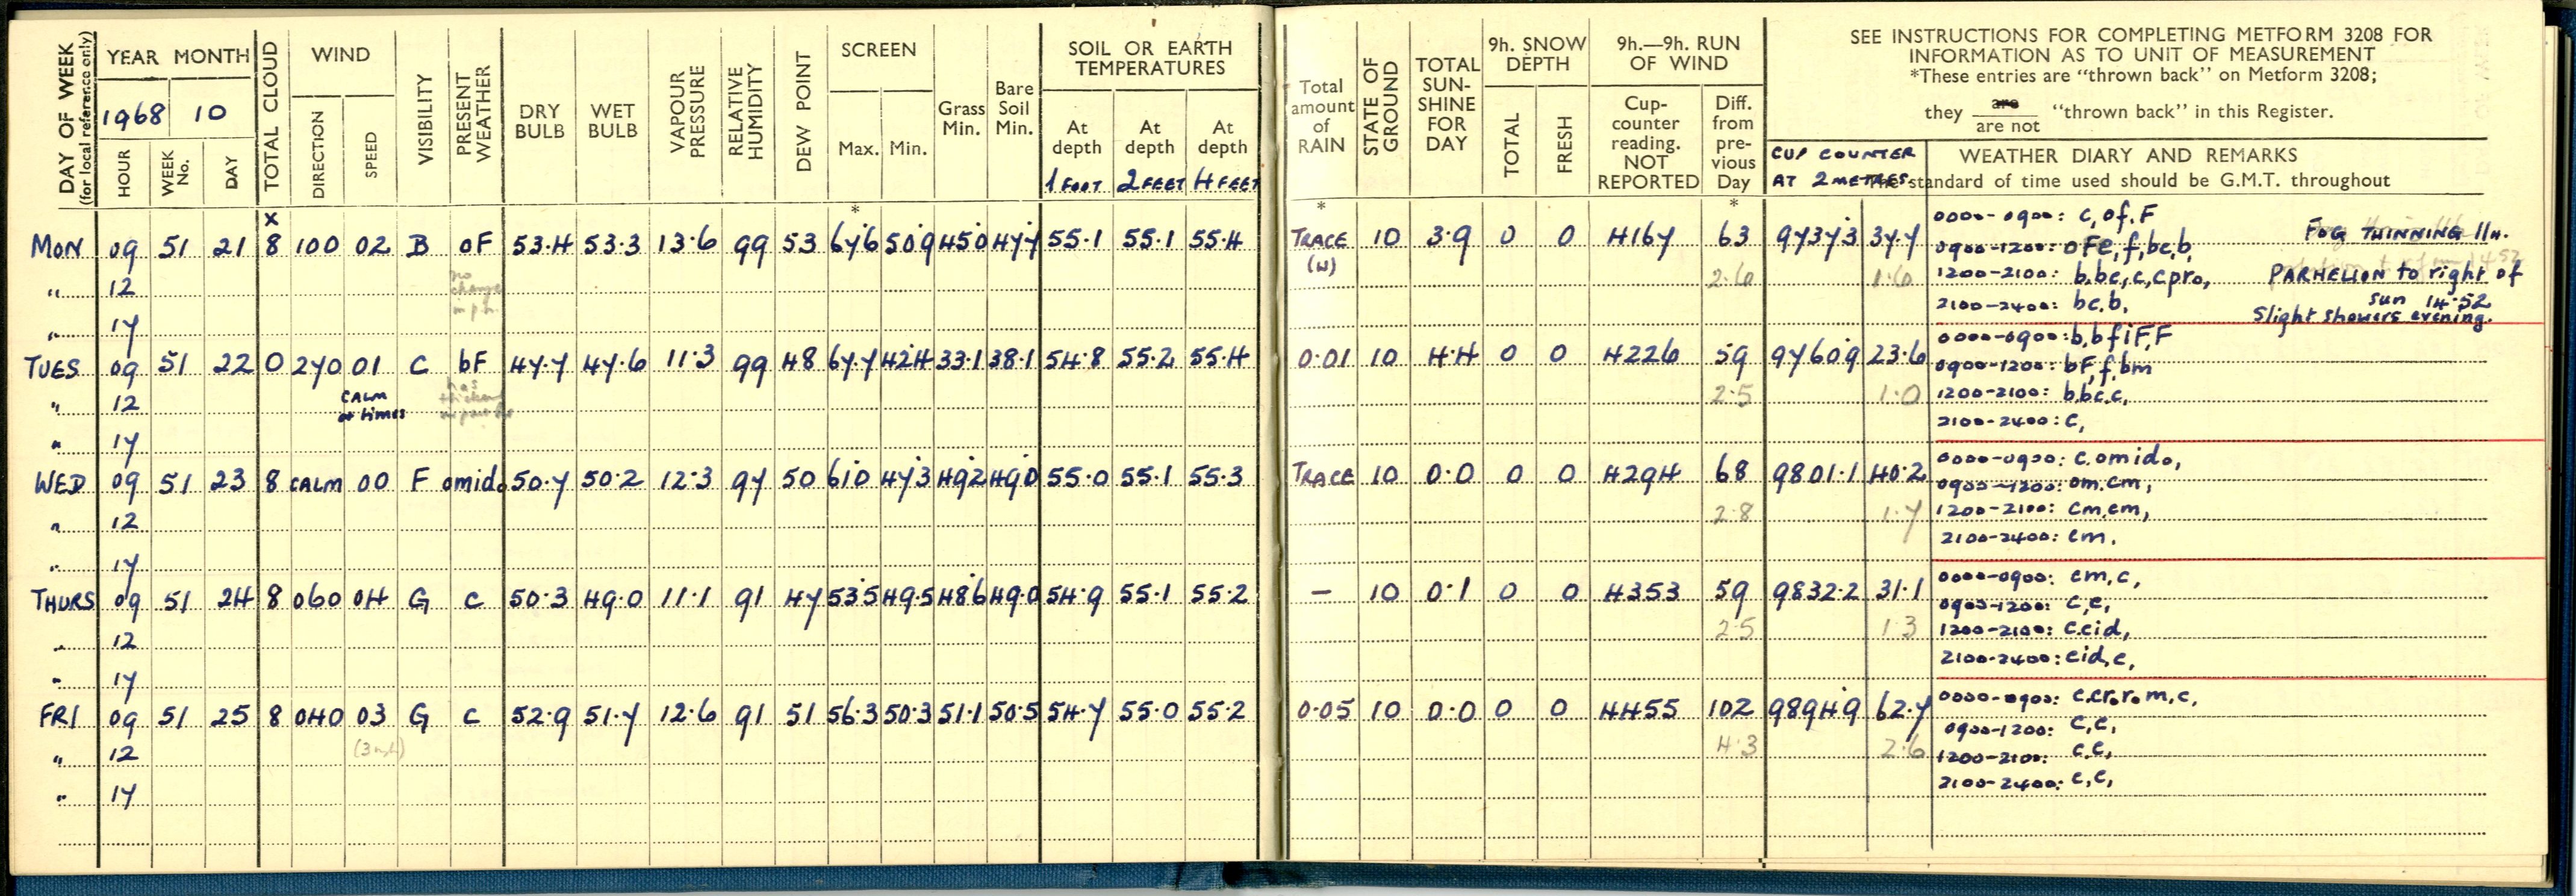 DAY OF WEEK
(for local reference only)
YEAR MONTH
1968 10
HOUR
WEEK No.
DAY
TOTAL CLOUD
WIND
DIRECTION
SPEED
VISIBILITY
PRESENT WEATHER
DRY BULB
WET BULB
VAPOUR PRESSURE
RELATIVE HUMIDITY
DEW POINT
SCREEN
Max. Min.
Grass Min.
Bare Soil Min.
SOIL OR EARTH
TEMPERATURES
At depth At depth At depth
1 FOOT 2 FEET 4 FEET
Total amount of RAIN
STATE OF GROUND
TOTAL SUN-SHINE FOR DAY
9h. SNOW DEPTH
TOTAL
FRESH
9h.—9h. RUN OF WIND
Cup-counter reading. NOT REPORTED
Diff. from pre-vious Day
SEE INSTRUCTIONS FOR COMPLETING METFORM 3208 FOR
INFORMATION AS TO UNIT OF MEASUREMENT
*These entries are "thrown back" on Metform 3208;
they are / are not "thrown back" in this Register.
CUP COUNTER
AT 2 METRES
WEATHER DIARY AND REMARKS
The standard of time used should be G.M.T. throughout
x * * *
MON 09 51 21 8 100 02 B oF 53.4 53.3 13.6 99 53 67.6 50.9 45.0 47.7 55.1 55.1 55.4 TRACE 10 3.9 0 0 4167 63 9737.3 37.7
(W)
" 12 no change in p.h. 2.6 1.6
" 17
0000-0900: c, of. F
0900-1200: oFe, f, bc, b,
1200-2100: b, bc, c, cpro,
2100-2400: bc, b,
FOG THINNING 11H.
PARHELION to right of
sun 14.52
Slight showers evening.
TUES 09 51 22 0 270 01 C bF 47.7 47.6 11.3 99 48 67.7 42.4 33.1 38.1 54.8 55.2 55.4 0.01 10 4.4 0 0 4226 59 9760.9 23.6
" 12 CALM at times 2.5 1.0
" 17
0000-0900: b, bfiF, F
0900-1200: bF, f, bm
1200-2100: b, bc, c,
2100-2400: c,
WED 09 51 23 8 CALM 00 F omido 50.7 50.2 12.3 97 50 61.0 47.3 49.2 49.0 55.0 55.1 55.3 TRACE 10 0.0 0 0 4294 68 9801.1 40.2
" 12 2.8 1.7
" 17
0000-0900: c. omido,
0900-1200: om, cm,
1200-2100: cm, cm,
2100-2400: cm.
THURS 09 51 24 8 060 04 G c 50.3 49.0 11.1 91 47 53.5 49.5 48.6 49.0 54.9 55.1 55.2 — 10 0.1 0 0 4353 59 9832.2 31.1
" 12 2.5 1.3
" 17
0000-0900: cm, c,
0900-1200: c, c,
1200-2100: c.cid,
2100-2400: cid, c,
FRI 09 51 25 8 040 03 G c 52.9 51.7 12.6 91 51 56.3 50.3 51.1 50.5 54.7 55.0 55.2 0.05 10 0.0 0 0 4455 102 9894.9 62.7
" 12 (3 mph) 4.3 2.6
" 17
0000-0900: c.cror. m, c,
0900-1200: c, c,
1200-2100: c.c,
2100-2400: c, c,